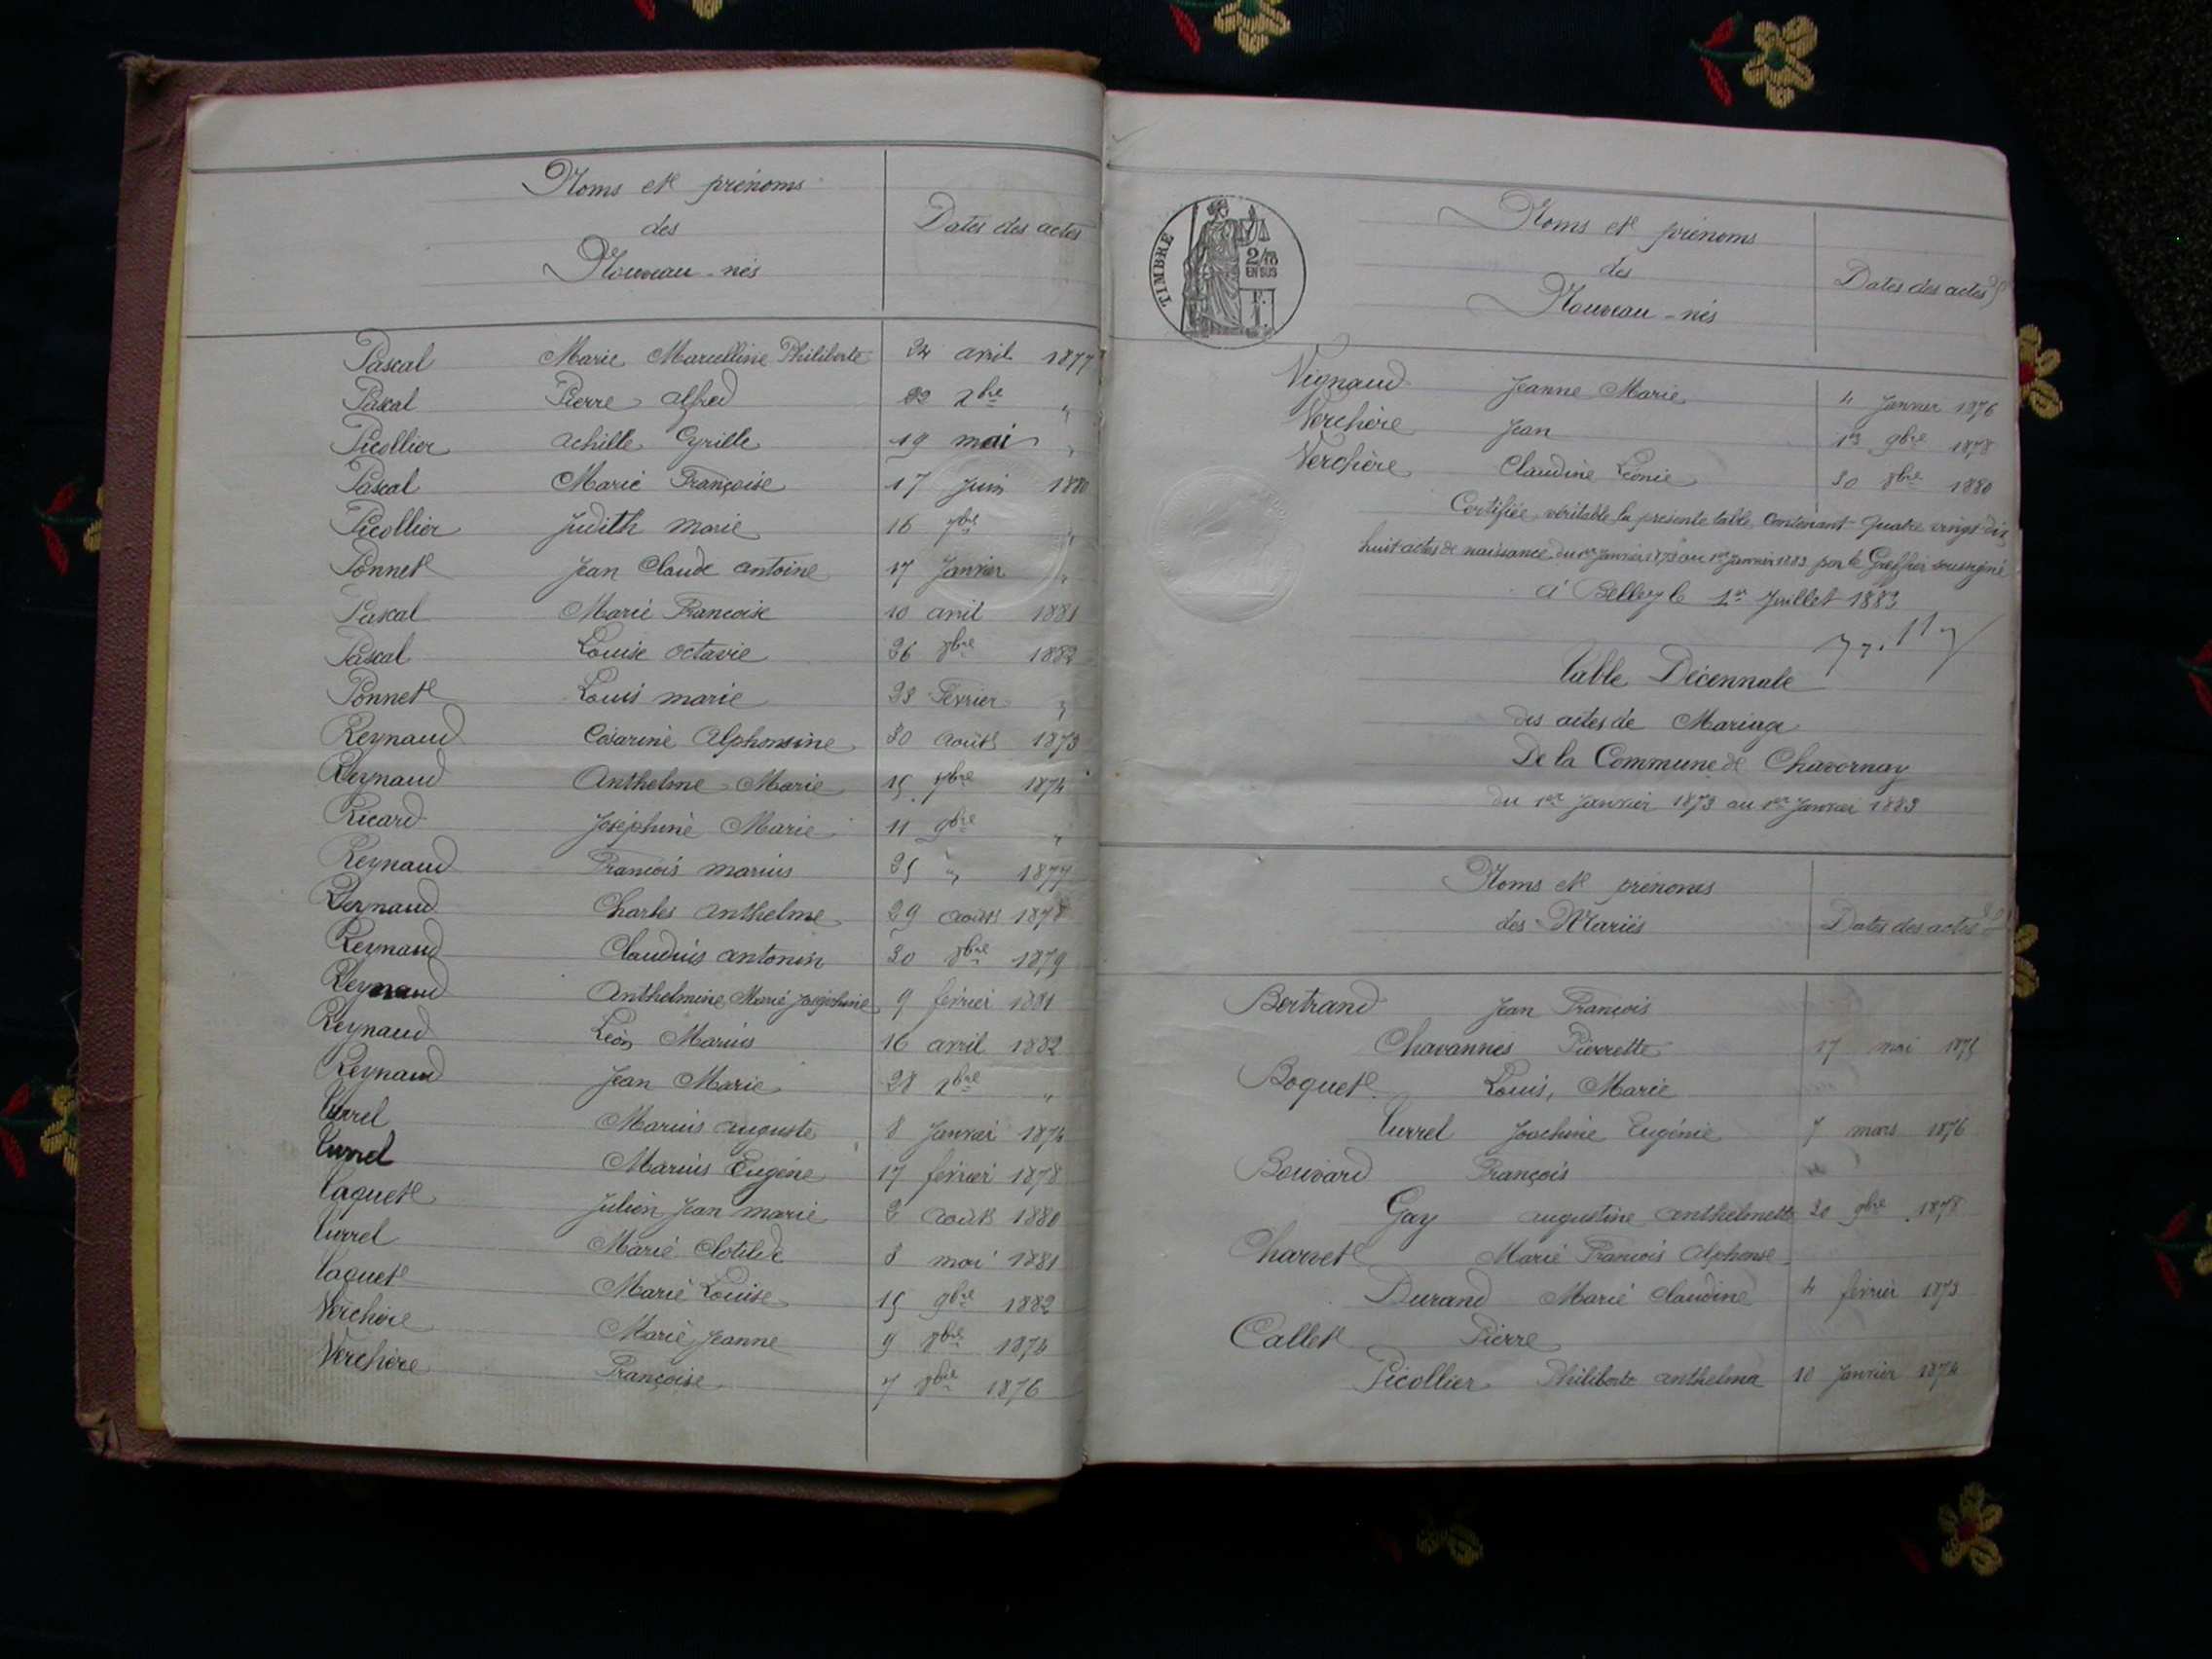 Noms et prénoms
des
Nouveau-nés
Dates des actes
Pascal Marie Marcelline Philiberte 24 avril 1877
Pascal Pierre Alfred 22 Xbre "
Picollier Achille Cyrille 19 mai "
Pascal Marie Françoise 17 Juin 1880
Picollier Judith Marie 16 7bre "
Ponnet Jean Claude Antoine 17 Janvier "
Pascal Marie Françoise 10 avril 1881
Pascal Louise Octavie 26 8bre 1882
Ponnet Louis Marie 23 Février "
Reynaud Césarine Alphonsine 30 Août 1873
Reynaud Anthelme Marie 15 7bre 1874
Ricard Joséphine Marie 11 9bre "
Reynaud François Marius 25 " 1877
Reynaud Charles Anthelme 29 Août 1878
Reynaud Claudius Antonin 30 8bre 1879
Reynaud Anthelmine Marie Joséphine 9 février 1881
Reynaud Léon Marius 16 avril 1882
Reynaud Jean Marie 28 Xbre "
Turrel Marius Auguste 8 Janvier 1874
Turrel Marius Eugène 17 février 1878
Taquet Julien Jean Marie 2 Août 1880
Turrel Marie Clotilde 8 mai 1881
Taquet Marie Louise 15 9bre 1882
Verchère Marie Jeanne 9 8bre 1874
Verchère Françoise 7 8bre 1876
TIMBRE
2/10
EN SUS
F.
Noms et prénoms
des
Nouveau-nés
Dates des actes
Vignaud Jeanne Marie 4 Janvier 1876
Verchère Jean 13 9bre 1878
Verchère Claudine Léonie 30 8bre 1880
Certifiée véritable la présente table contenant quatre vingt dix
huit actes de naissance du 1er Janvier 1873 au 1er Janvier 1883 par le Greffier soussigné
à Belley le 1er Juillet 1883
Table Décennale
des actes de Mariage
De la Commune de Chavornay
du 1er Janvier 1873 au 1er Janvier 1883
Noms et prénoms
des Mariés
Dates des actes
Bertrand Jean François
Chavannes Pierrette 17 mai 1875
Boquet Louis, Marie
Turrel Joachime Eugénie 7 mars 1876
Bouvard François
Gay Augustine Anthelmette 20 9bre 1878
Charvet Marie François Alphonse
Durand Marie Claudine 4 février 1873
Callet Pierre
Picollier Philiberte Anthelma 10 Janvier 1874